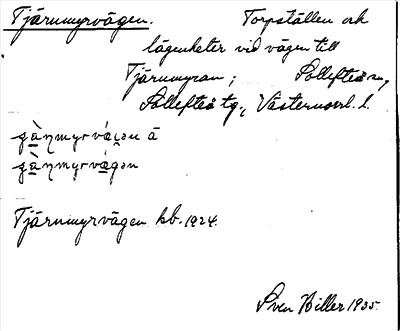 Tjärnmyrvägen. Torpställen och
lägenheter vid vägen till
Tjärnmyran; Sollefteå sn,
Sollefteå tg., Västernorrl. l.
Tjärnmyrvägen kb. 1924.
Sven Hiller 1935.